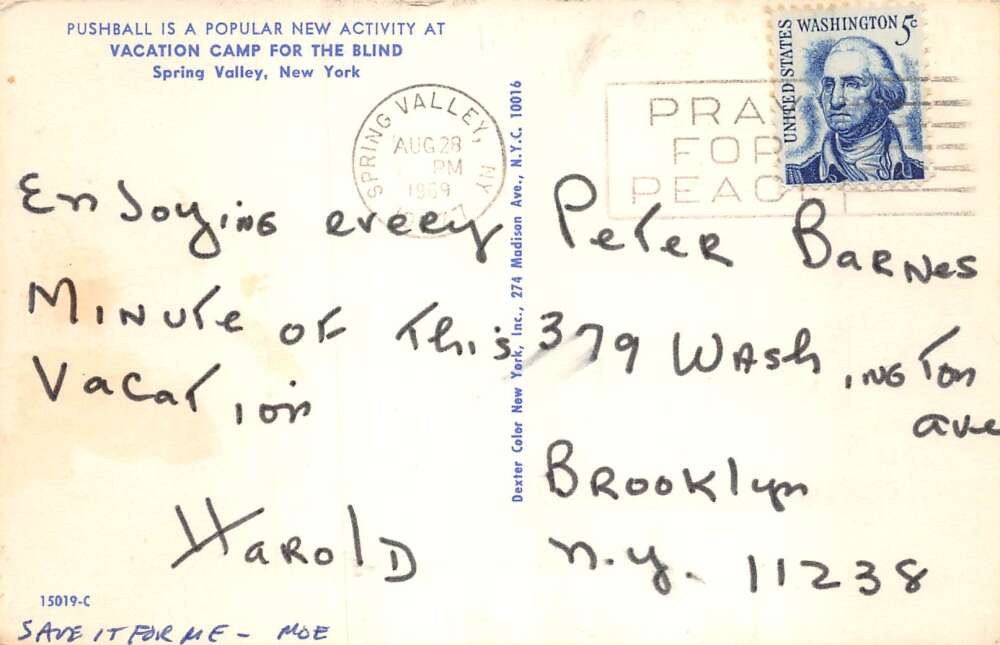 PUSHBALL IS A POPULAR NEW ACTIVITY AT
VACATION CAMP FOR THE BLIND
Spring Valley, New York
SPRING VALLEY, NY
AUG 28
PM
1969
PRAY
FOR
PEACE
UNITED STATES
WASHINGTON 5c
Enjoying every
Minute of this
Vacation
Harold
Dexter Color New York, Inc., 274 Madison Ave., N.Y.C. 10016
Peter Barnes
379 Washington
ave
Brooklyn
n.y. 11238
15019-C
SAVE IT FOR ME - MOE